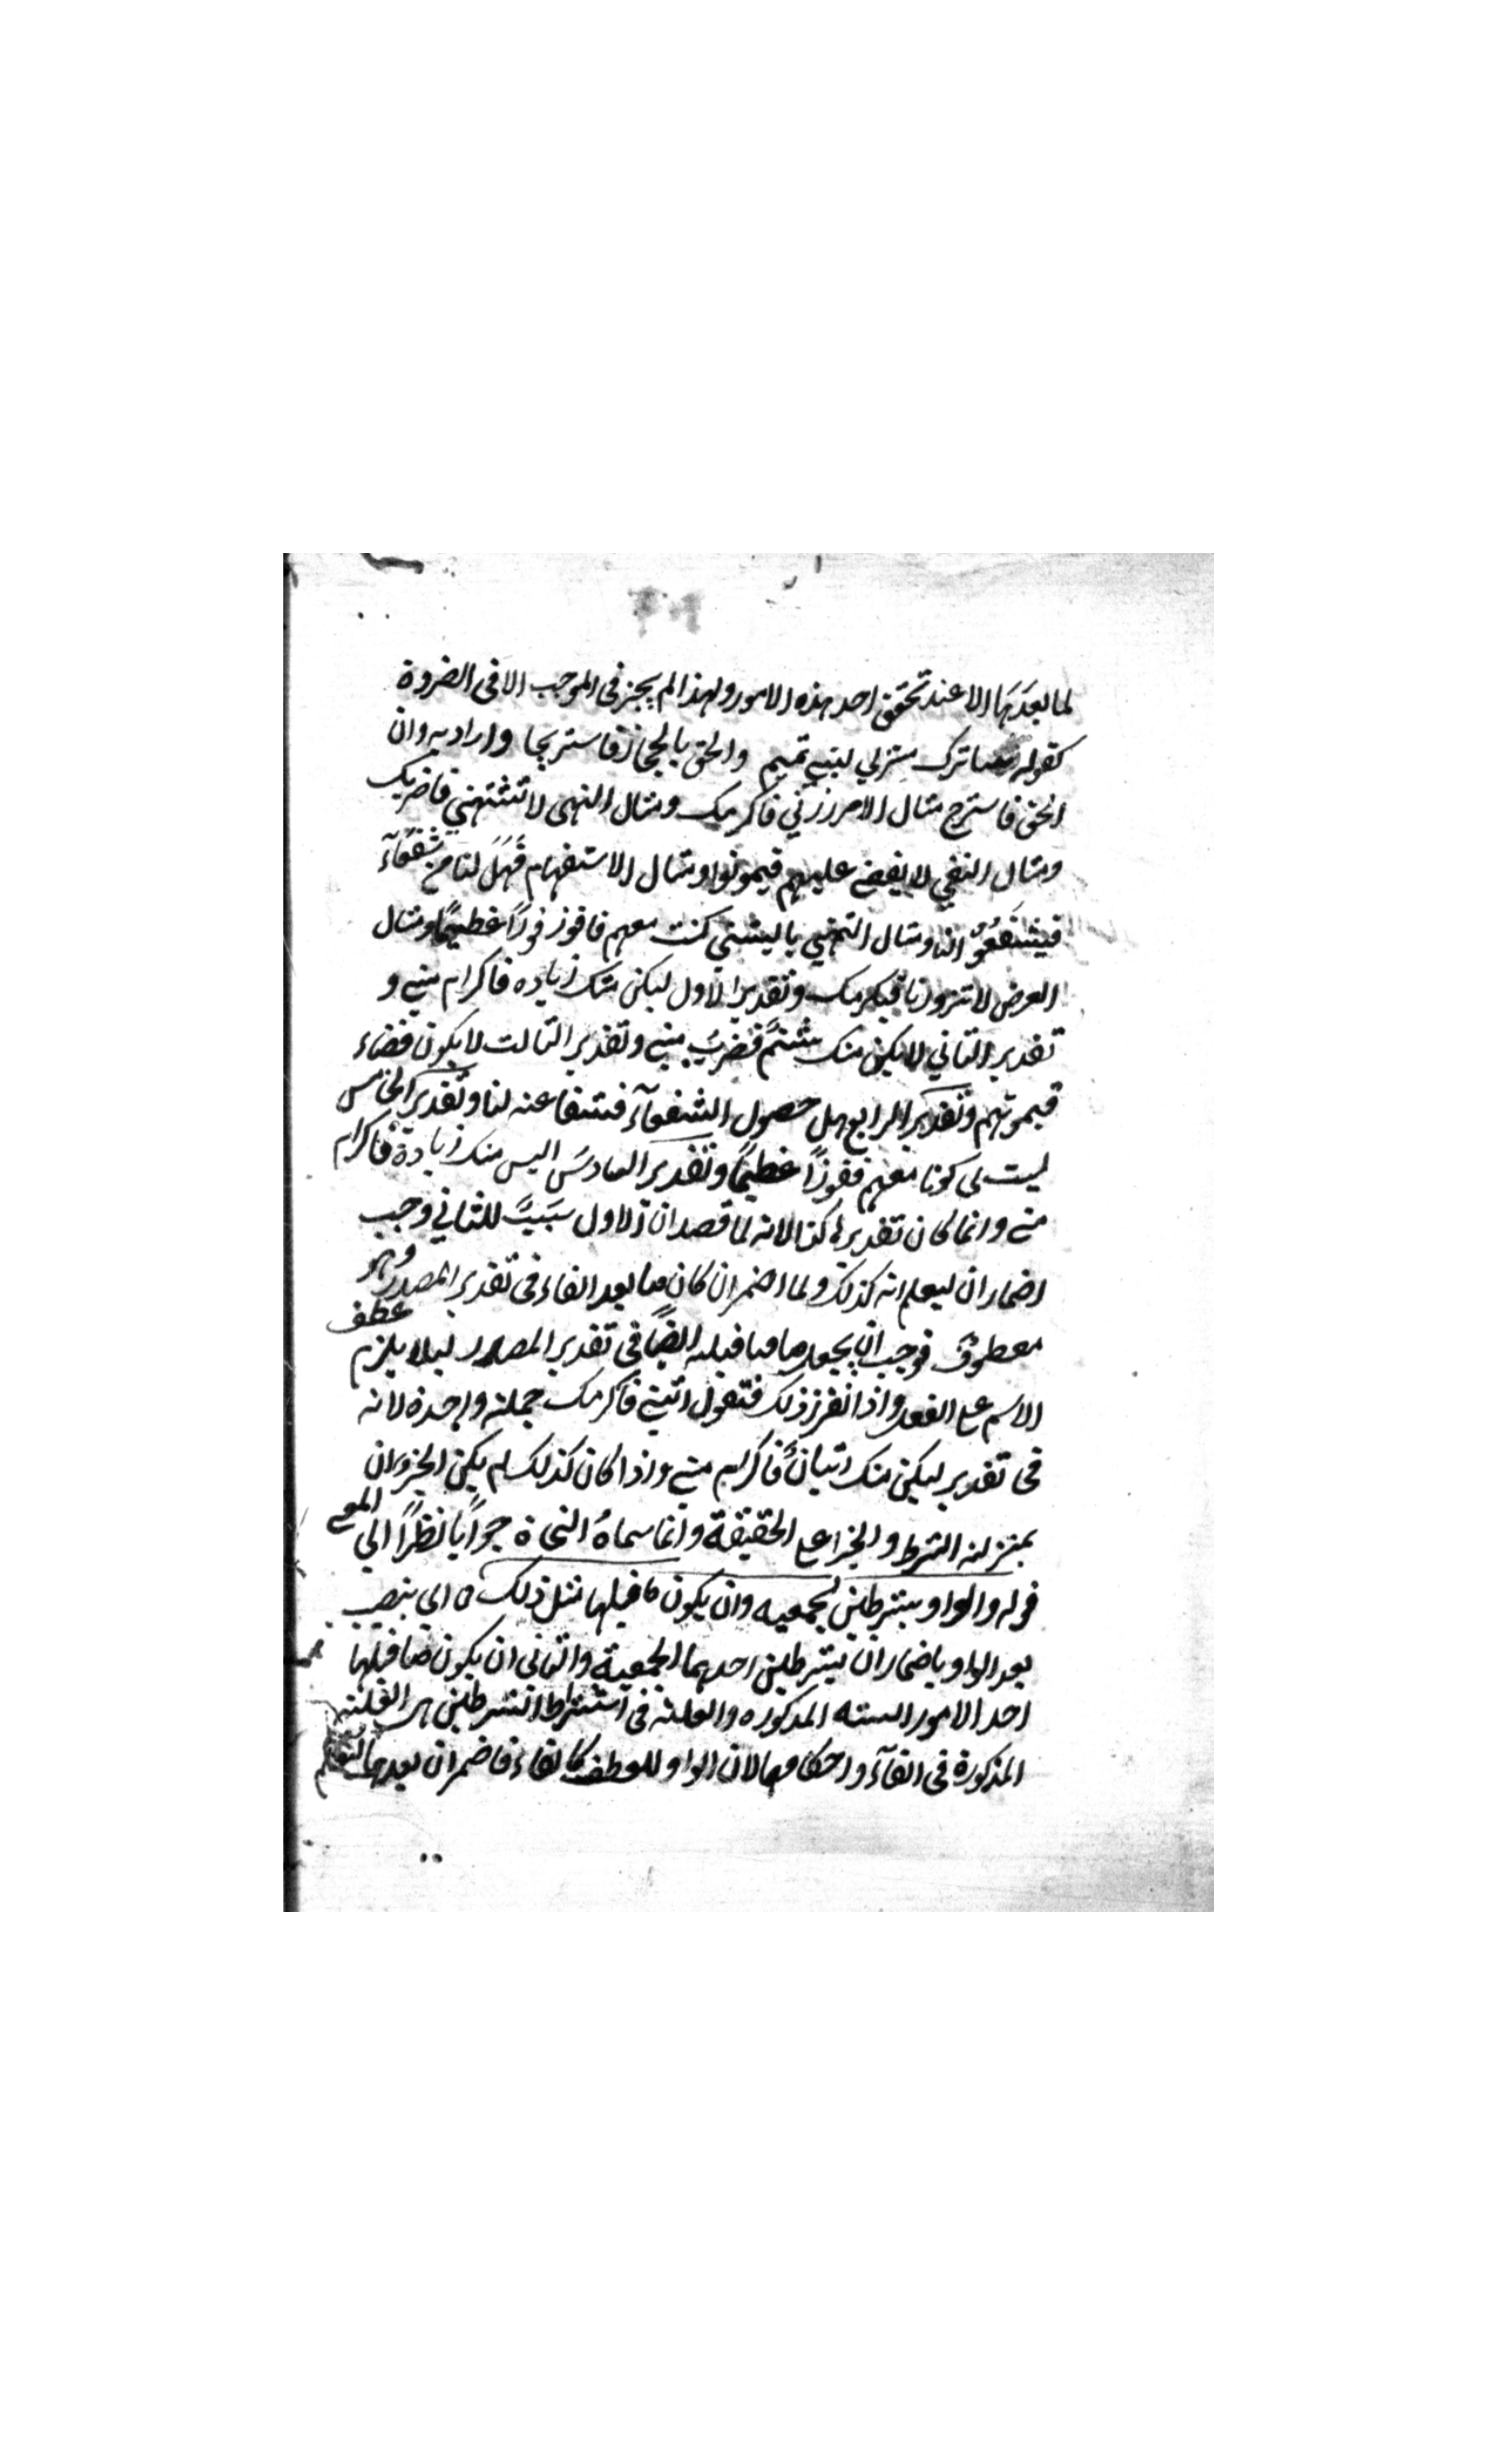 لما بعدَهَا الا عند تحقق احد هذه الامور ولهذا لم يجز فى الموجب الا فى الضروة
كقوله ساترك منزلي لبني تميم والحق بالحجاز فاستريحا واراد به وان
الحق فاستريح مثال الامر زرني فاكرمك ومثال النهى لا تشتمني فاضربك
ومثال النفي لا يقضى عليهم فيموتوا ومثال الاستفهام فَهَلْ لنا من شفعآء
فيشفعُوْ النا ومثال التمني ياليتني كنت معهم فافوز فوزًا عظيمًا ومثال
العرض لا تزورنا فيكرمك وتقدير الاول ليكن منك زياده فاكرام مني و
تقدير الثاني لا يكن منك شتمٌ فضربٌ مني وتقدير الثالث لا يكون قضاء
فيموتهم وتقدير الرابع هل حصول الشفعآء فشفاعنه لنا وتقدير الخامس
ليت لى كونا معهم ففوزًا عظيمًا وتقدير السادسَ اليس منك زيادة فاكرام
مني وانما كان تقديرها كذا لانه لما قصد ان الاول سَبَبٌ للثاني وجب
اضمار ان ليعلم انه كذلك ولما اضمر ان كان ما بعد الفاء فى تقدير المصدر وهو
معطوفٌ فوجب ان يجعل ما قبله ايضًا فى تقدير المصدر ليلا يلزم عطف
الاسم على الفعل واذا تقرر ذلك فتقول اتيني فاكرمك جملة واحدة لانه
فى تقدير ليكن منك اتيانٌ فاكرام مني واذا كان كذلك لم يكن الجزءان
بمنزلة الشرط والجزا على الحقيقة وانما سماهُ النحاة جوابًا نظرًا الي المعنى
قوله والواو بشرطين الجمعيه وان يكون ما قبلها مثل ذلك اي ينصب
بعد الواو باضمار ان بشرطين احدهما الجمعية والثانى ان يكون ما قبلها
احد الامور الستة المذكوره والعلة فى اشتراط الشرطين هى العلة
المذكورة فى الفآء واحكامها لان الواو للعطف كالفاء فاضمر ان بعدها ليعلم